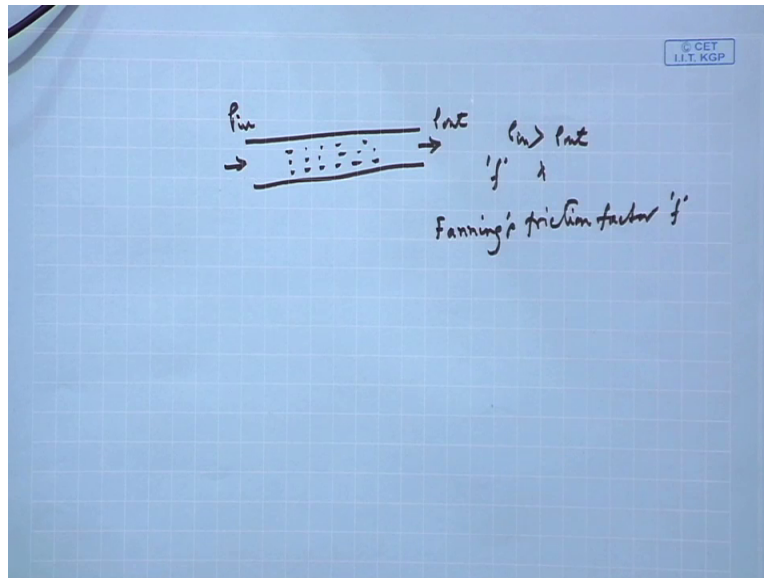 © CET
I.I.T. KGP
Pin
Pout
Pin > Pout
'f'
Fanning's friction factor 'f'